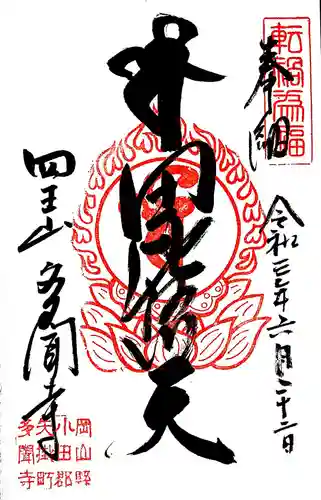 転禍為福
奉納
令和三年六月二十二日
天
四王山 多聞寺
岡山縣
小田郡
矢掛町
多聞寺